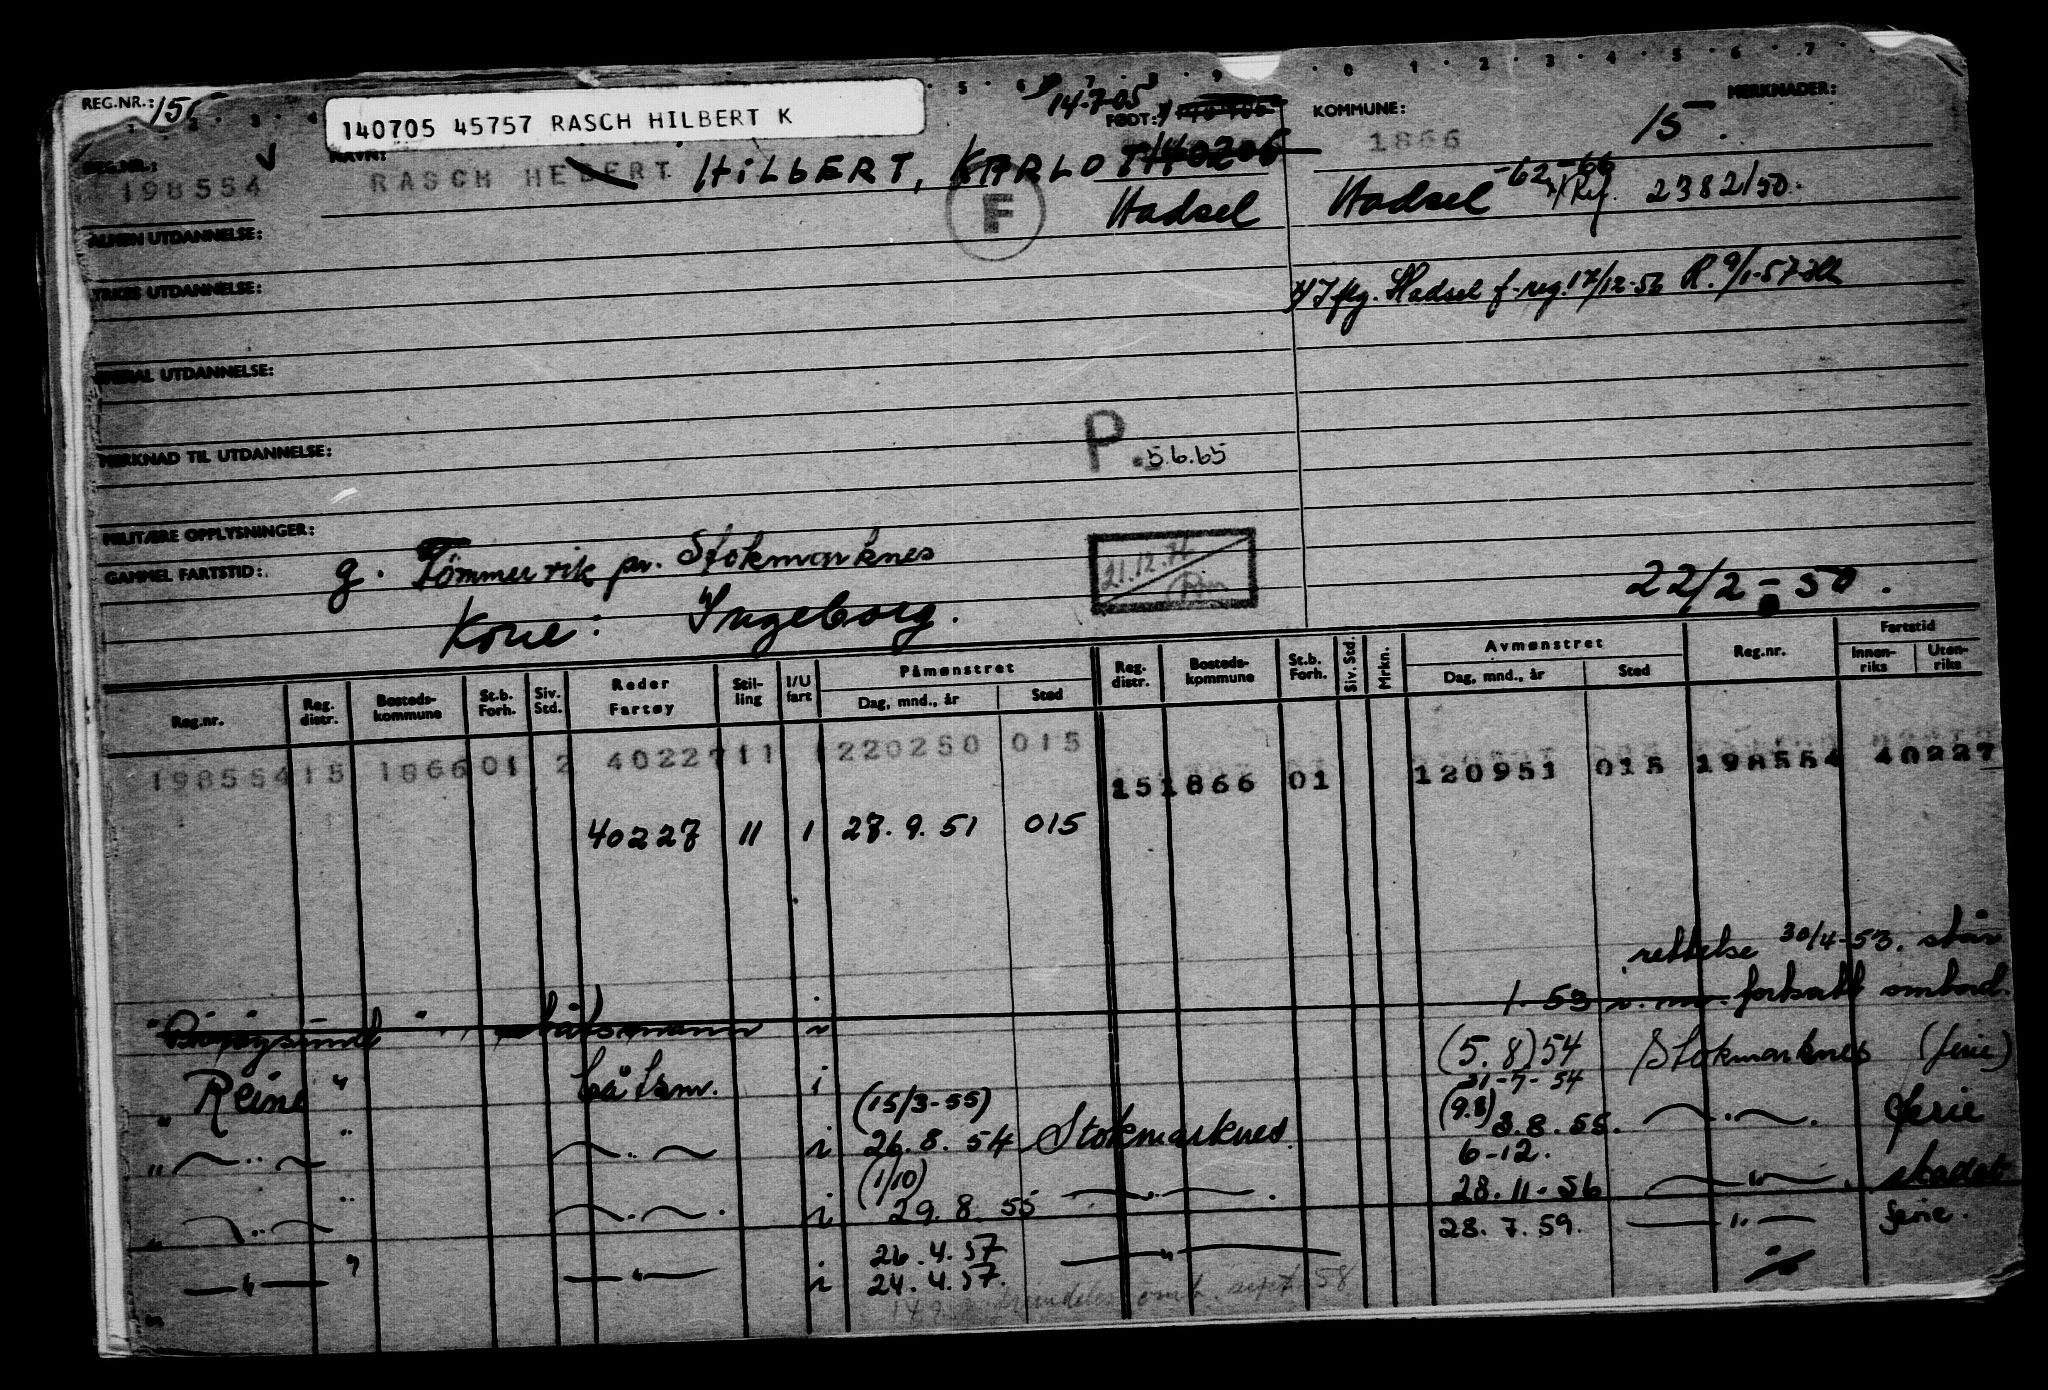 REG.NR.: 15
140705 45757 RASCH HILBERT K
14-7-05
FØDT:
KOMMUNE:
MERKNADER:
REG.NR.:
NAVN:
198554
RASCH HEBERT HILBERT, KARLOT
140206
1866
15.
F
Hadsel
Hadsel -62-66
2382/50.
ALMEN UTDANNELSE:
YRKES UTDANNELSE:
Hadsel f-reg. 17/12-56 R. 9/1-57
SPESIAL UTDANNELSE:
MERKNAD TIL UTDANNELSE:
P. 5.6.65
MILITÆRE OPPLYSNINGER:
GAMMEL FARTSTID:
g. Tömmervik pr. Stokmarknes
21.12.76
22/2-50.
Kone: Ingeborg.
Reg.nr. Reg. distr. Bosteds-kommune St.b. Forh. Siv. Std. Reder Fartøy Stil-ling I/U fart Påmønstret Dag, mnd., år Sted Reg. distr. Bosteds-kommune St.b. Forh. Siv. Std. Mrkn. Avmønstret Dag, mnd., år Sted Reg.nr. Fartstid Innen-riks Uten-riks
198554 15 1866 01 2 40227 11 1 220250 015 15 1866 01 120951 015 198554 40227
40227 11 1 27.9.51 015
rettelse 30/4-53. står
båtsmann i 1.53 fortsatt ombord.
" Reine " båtsm. i (5.8) 54 Stokmarknes (ferie)
31-7-54
(15/3-55) (9.8)
" — " — i 26.8.54 Stokmarknes 3.8.55. — " — . ferie
(1/10) 6-12.
" — " — i 29.8.55 — " — . 28.11-56 — " — . skadet
26.4.57 28.7.59. — " — ferie.
— " — " — " — i 24.4.57. — " —
sept 58